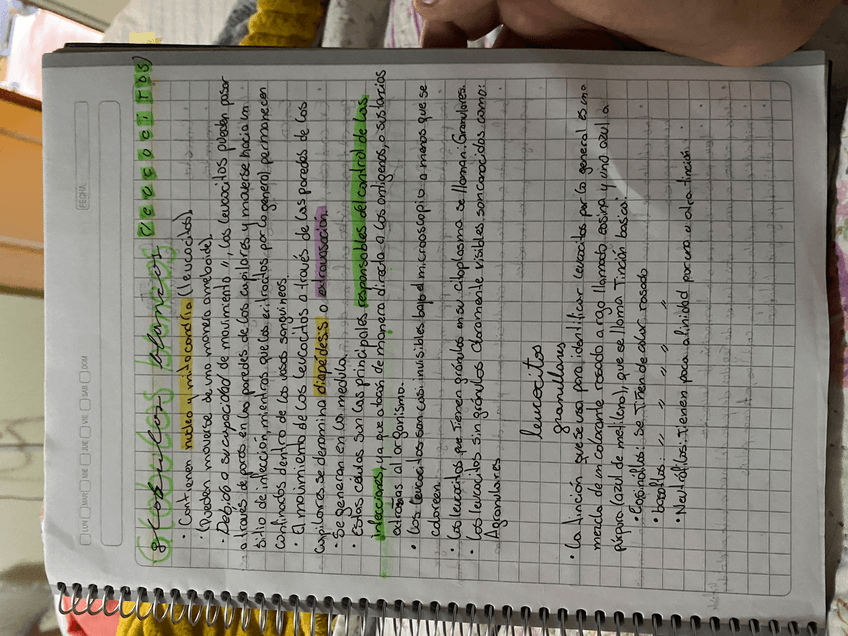 FECHA
LUN MAR MIE JUE VIE SAB DOM
Globulos blancos (leucocitos)
• Contienen nucleo y mitocondria (leucocitos)
• Pueden moverse de una manera ameboide).
• Debido a su capacidad de movimiento ", los leucocitos pueden pasar
a través de poros en las paredes de los capilares y moverse hacia un
sitio de infección, mientras que los eritrocitos por lo general permanecen
confinados dentro de los vasos sanguineos
• El movimiento de los leucocitos a través de las paredes de los
capilares se denomina diapédesis o extravasación.
• Se generan en la medula.
• Estas células son las principales responsables del control de las
infecciones, ya que atacan de manera directa a los antigenos, o sustancias
extrañas al organismo.
• Los leucocitos son casi invisibles bajo el microscopio a menos que se
coloreen.
• Los leucocitos que tienen gránulos en su citoplasma se llaman: Granulares.
• Los leucocitos sin gránulos claramente visibles son conocidos como:
Agranulares
leucocitos
granulares
• La tinción que se usa para identificar leucocitos por lo general es una
mezcla de un colorante rosado a rojo llamado eosina y uno azul a
púrpura (azul de metileno), que se llama "Tinción basica".
• Eosinofilos: se tiñen de color rosado
• basofilos: " " " " "
• Neutrófilos: tienen poca afinidad por una u otra tinción.